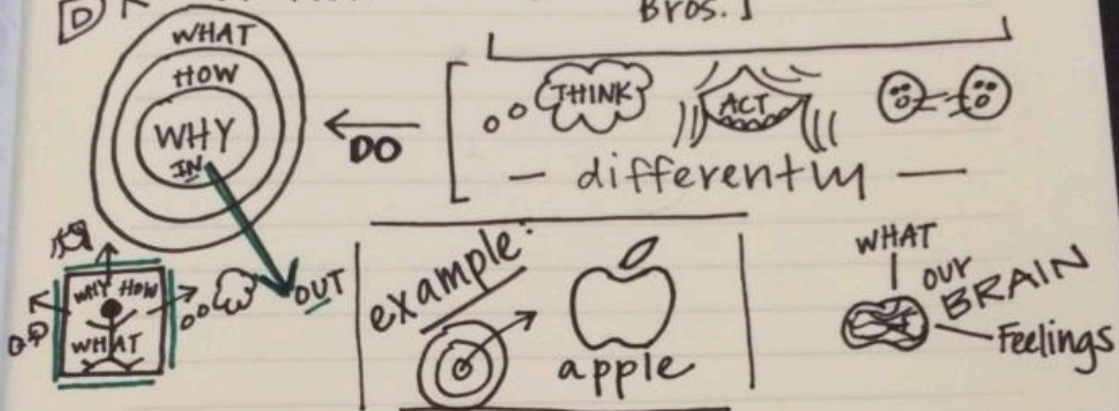 D
Bros.]
WHAT
HOW
WHY
IN
OUT
DO
THINK
ACT
- differently -
WHY HOW
WHAT
example:
apple
WHAT
our
BRAIN
Feelings